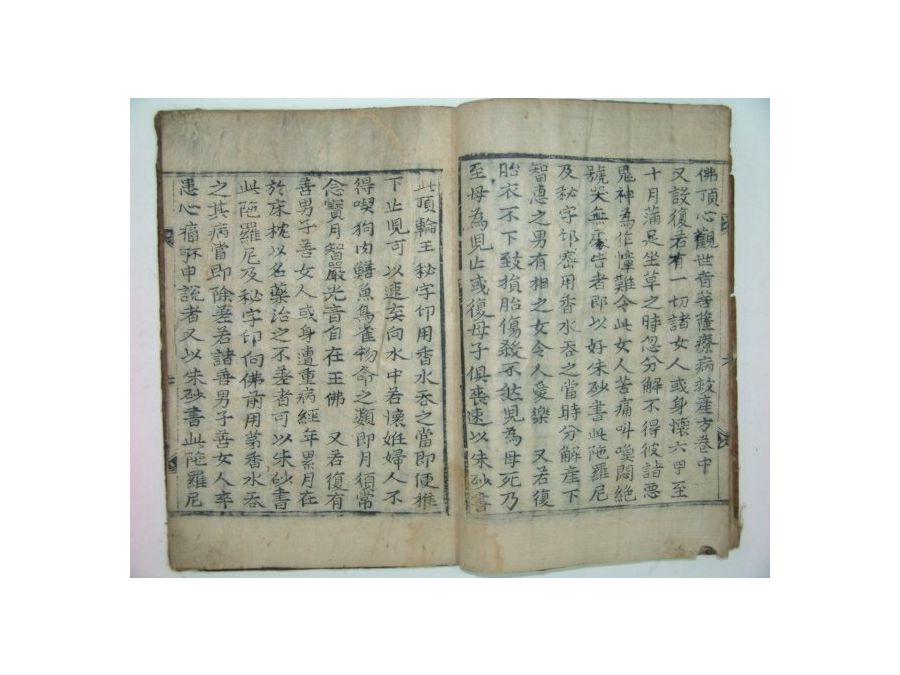 佛頂心觀世音菩薩療病救産方卷中
又設復若有一切諸女人或身壞六甲至
十月蒲足坐草之時忽分解不得彼諸惡
鬼神為作憧難令此女人苦痛叫喚悶絶
號哭無處告者即以好朱砂書此陁羅尼
及秘字印密用香水吞之當時分解產下
智惠之男有相之女令人愛樂 又若復
胎衣不下致損胎傷殺不
兒為母死乃
至母為兒止或復母子俱喪速以朱砂書
此頂輪王秘字印用香水吞之當即便推
下止兒可以速弃向水中若懷姙婦人不
得喫狗肉鱔魚鳥雀物命之類即月須常
念寶月智嚴光音自在王佛 又若復有
善男子善女人或身遭重病經年累月在
於床枕以名藥治之不差者可以朱砂書
此陁羅尼及秘字印向佛前用茅香水吞
之其病當即除差若諸善男子善女人卒
患心痛不
申說者又以朱砂書此陁羅尼